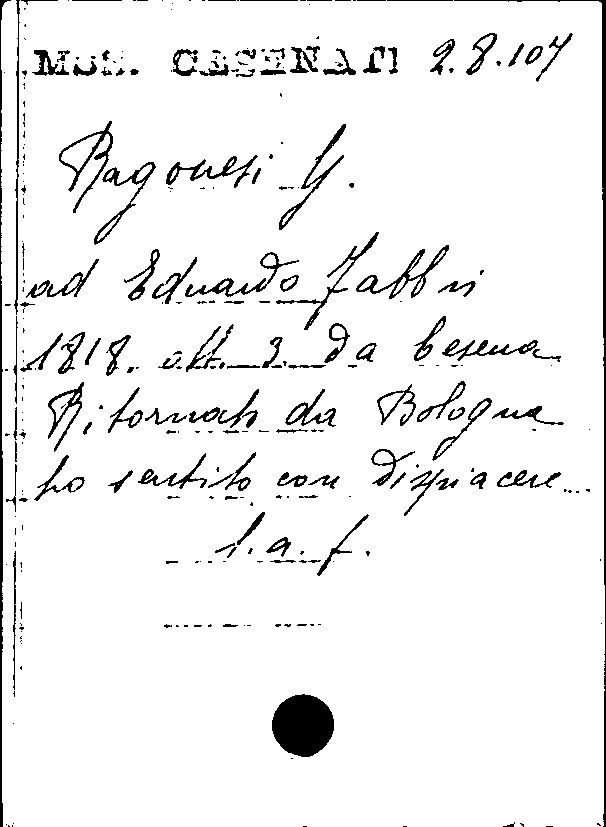 Mss. CESENATI 2.8.107
Ragonesi G.
ad Eduardo Fabbri
1818. ott. 3. da Cesena
Ritornato da Bologna
ho sentito con dispiacere...
l.a.f.